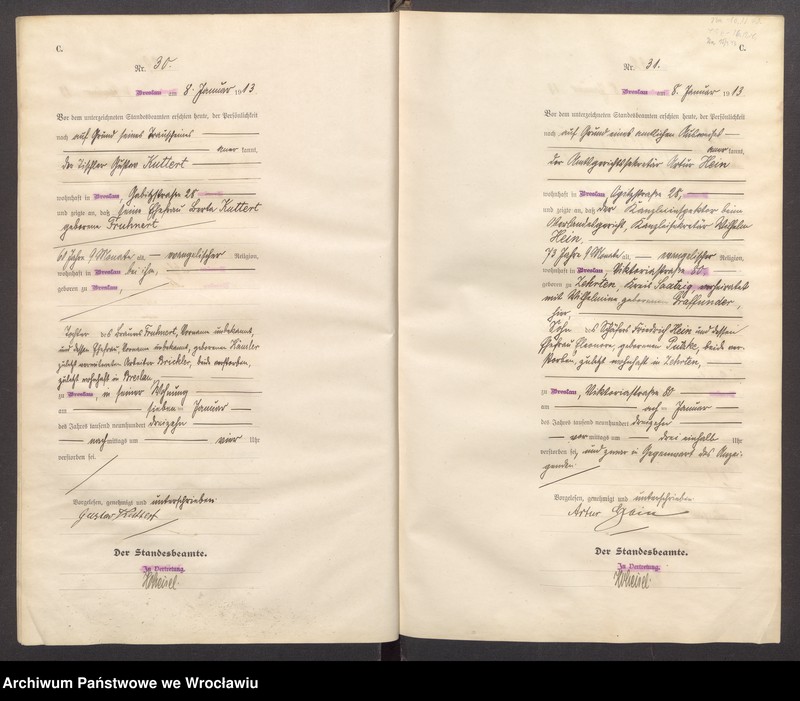 C.
Nr. 30.
Breslau am 8. Januar 1913
Vor dem unterzeichneten Standesbeamten erschien heute, der Persönlichkeit
nach auf Grund seines Trauscheines
anerkannt,
der Tischler Gustav Kuttert
wohnhaft in Breslau, Gabitzstraße 28
und zeigte an, daß seine Ehefrau Berta Kuttert
geborene Fruhnert
61 Jahre 9 Monate alt, evangelischer Religion,
wohnhaft in Breslau bei ihm,
geboren zu Breslau,
Tochter des Brauers Fruhnert, Vorname unbekannt,
und dessen Ehefrau, Vorname unbekannt, geborenen
zuletzt verwitweten Arbeiter, beide verstorben,
zuletzt wohnhaft in Breslau,
zu Breslau, in seiner Wohnung
am sieben Januar
des Jahres tausend neunhundert dreizehn
nachmittags um vier Uhr
verstorben sei.
Vorgelesen, genehmigt und unterschrieben
Gustav Kuttert
Der Standesbeamte.
In Vertretung.
C.
Nr. 31.
Breslau am 8. Januar 1913
Vor dem unterzeichneten Standesbeamten erschien heute, der Persönlichkeit
nach auf Grund eines amtlichen Ausweises
anerkannt,
der Amtsgerichtssekretär Artur Hein
wohnhaft in Breslau, 28,
und zeigte an, daß der Kanzleiinspektor beim
Oberlandesgericht, Kanzleisekretär Wilhelm
Hein,
73 Jahre 9 Monate alt, evangelischer Religion,
wohnhaft in Breslau, Viktoriastraße 80,
geboren zu Zehrten, Kreis Saatzig, verheiratet
mit Wilhelmine geborenen Draffunder,
hier,
Sohn des Schäfers Friedrich Hein und dessen
Ehefrau Eleonore, geborenen, beide ver-
storben, zuletzt wohnhaft in Zehrten,
zu Breslau, Viktoriastraße 80
am acht Januar
des Jahres tausend neunhundert dreizehn
vormittags um drei einhalb Uhr
verstorben sei, und zwar in Gegenwart des Anzei-
genden.
Vorgelesen, genehmigt und unterschrieben
Artur Hein
Der Standesbeamte.
In Vertretung.
Archiwum Państwowe we Wrocławiu